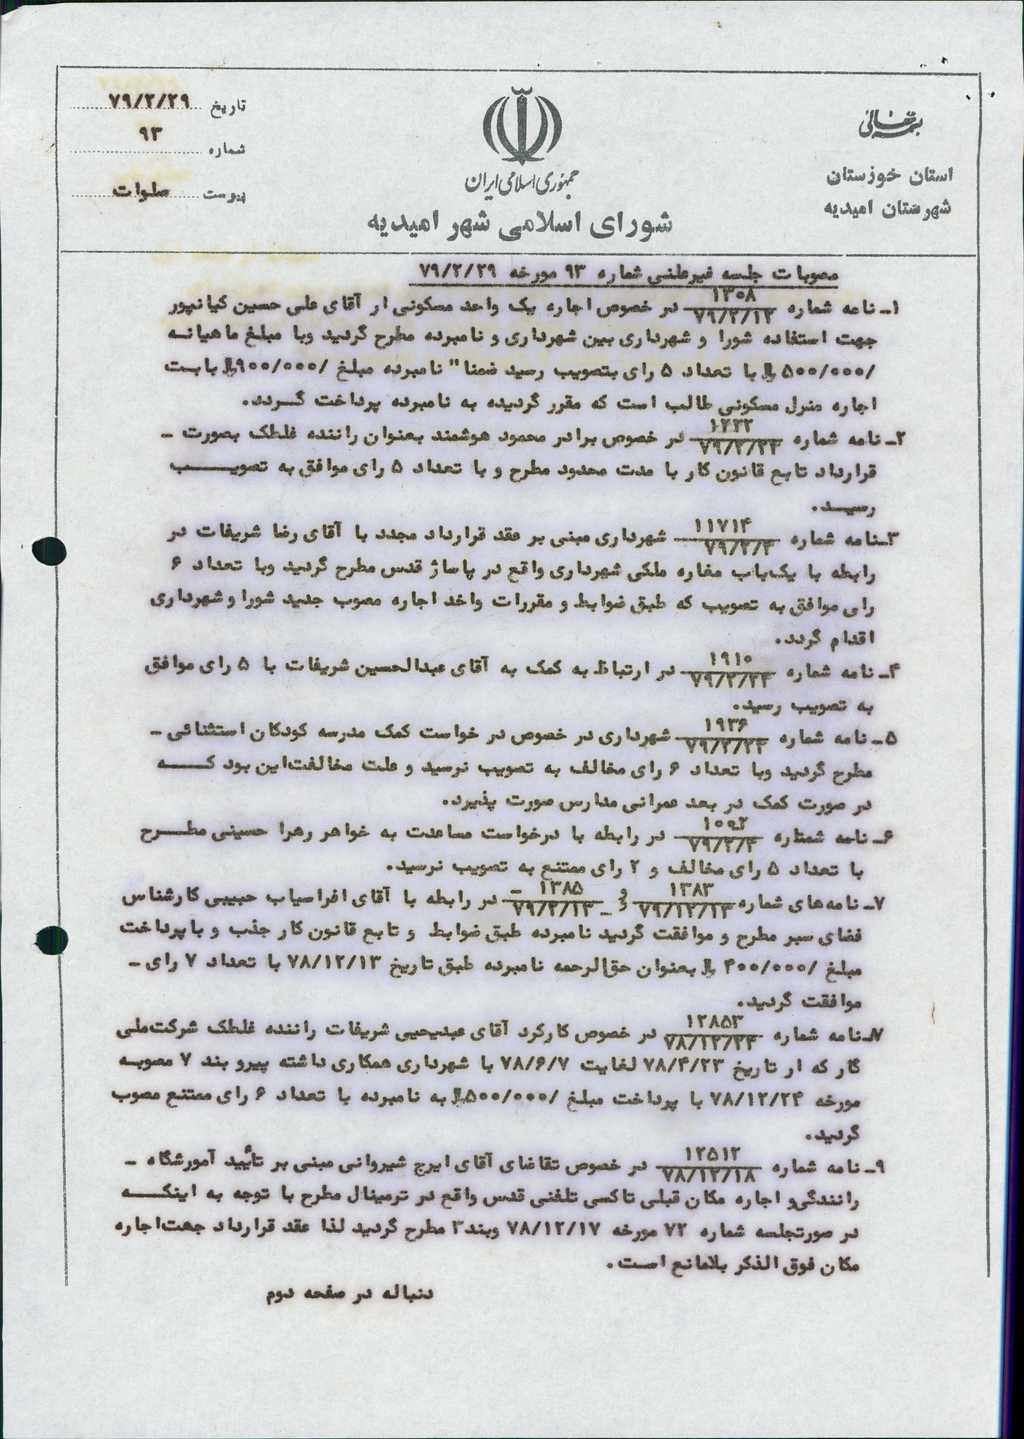 بسمه تعالی
استان خوزستان
شهرستان امیدیه
جمهوری اسلامی ایران
شورای اسلامی شهر امیدیه
تاریخ ۷۹/۲/۲۹
شماره ۹۳
پیوست صلوات
مصوبات جلسه غیرعلنی شماره ۹۳ مورخه ۷۹/۲/۲۹
۱ـ نامه شماره ۱۳۰۸ / ۷۹/۲/۱۲ در خصوص اجاره یک واحد مسکونی از آقای علی حسین کیانپور
جهت استفاده شورا و شهرداری بین شهرداری و نامبرده مطرح گردید وبا مبلغ ماهیانه
/۵۰۰/۰۰۰ ریال با تعداد ۵ رای بتصویب رسید ضمنا" نامبرده مبلغ /۹۰۰/۰۰۰ ریال بابت
اجاره منزل مسکونی طالب است که مقرر گردیده به نامبرده پرداخت گردد.
۲ـ نامه شماره ۱۲۲۲ / ۷۹/۲/۲۴ در خصوص برادر محمود هوشمند بعنوان راننده غلطک بصورت ـ
قرارداد تابع قانون کار با مدت محدود مطرح و با تعداد ۵ رای موافق به تصویب
رسید.
۳ـنامه شماره ۱۱۷۱۴ / ۷۹/۲/۴ شهرداری مبنی بر عقد قرارداد مجدد با آقای رضا شریفات در
رابطه با یکباب مغازه ملکی شهرداری واقع در پاساژ قدس مطرح گردید وبا تعداد ۶
رای موافق به تصویب که طبق ضوابط و مقررات واخذ اجاره مصوب جدید شورا وشهرداری
اقدام گردد.
۴ـ نامه شماره ۱۹۱۰ / ۷۹/۲/۲۴ در ارتباط به کمک به آقای عبدالحسین شریفات با ۵ رای موافق
به تصویب رسید.
۵ـ نامه شماره ۱۹۲۶ / ۷۹/۲/۲۴ شهرداری در خصوص در خواست کمک مدرسه کودکان استثنائی ـ
مطرح گردید وبا تعداد ۶ رای مخالف به تصویب نرسید و علت مخالفت این بود که
در صورت کمک در بعد عمرانی مدارس صورت پذیرد.
۶ـ نامه شمتاره ۱۰۹۲ / ۷۹/۲/۴ در رابطه با درخواست مساعدت به خواهر زهرا حسینی مطرح
با تعداد ۵ رای مخالف و ۲ رای ممتنع به تصویب نرسید.
۷ـ نامه‌های شماره ۱۳۸۳ / ۷۹/۱۲/۱۳ و ۱۳۸۵ / ۷۹/۲/۱۳ در رابطه با آقای افراسیاب حبیبی کارشناس
فضای سبز مطرح و موافقت گردید نامبرده طبق ضوابط و تابع قانون کار جذب و باپرداخت
مبلغ /۴۰۰/۰۰۰ ریال بعنوان حق‌الزحمه نامبرده طبق تاریخ ۷۸/۱۲/۱۳ با تعداد ۷ رای ـ
موافقت گردید.
۷ـنامه شماره ۱۲۸۵۳ / ۷۸/۱۲/۲۴ در خصوص کارکرد آقای عبدیحیی شریفات راننده غلطک شرکت ملی
گاز که از تاریخ ۷۸/۴/۲۳ لغایت ۷۸/۶/۷ با شهرداری همکاری داشته پیرو بند ۷ مصوبه
مورخه ۷۸/۱۲/۲۴ با پرداخت مبلغ /۵۰۰/۰۰۰ ریال به نامبرده با تعداد ۶ رای ممتنع مصوب
گردید.
۹ـ نامه شماره ۱۲۵۱۲ / ۷۸/۱۲/۱۸ در خصوص تقاضای آقای ایرج شیروانی مبنی بر تأیید آموزشگاه ـ
رانندگی و اجاره مکان قبلی تاکسی تلفنی قدس واقع در ترمینال مطرح با توجه به اینکه
در صورتجلسه شماره ۷۲ مورخه ۷۸/۱۲/۱۷ وبند۳ مطرح گردید لذا عقد قرارداد جهت اجاره
مکان فوق الذکر بلامانع است.
دنباله در صفحه دوم